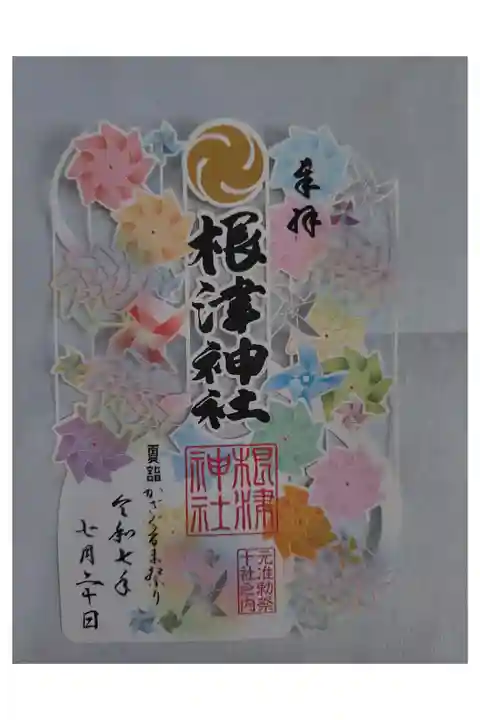 奉拝
根津神社
根津
神社
元准勅祭
十社之内
夏詣 かざぐるま祭り
令和七年
七月二十日